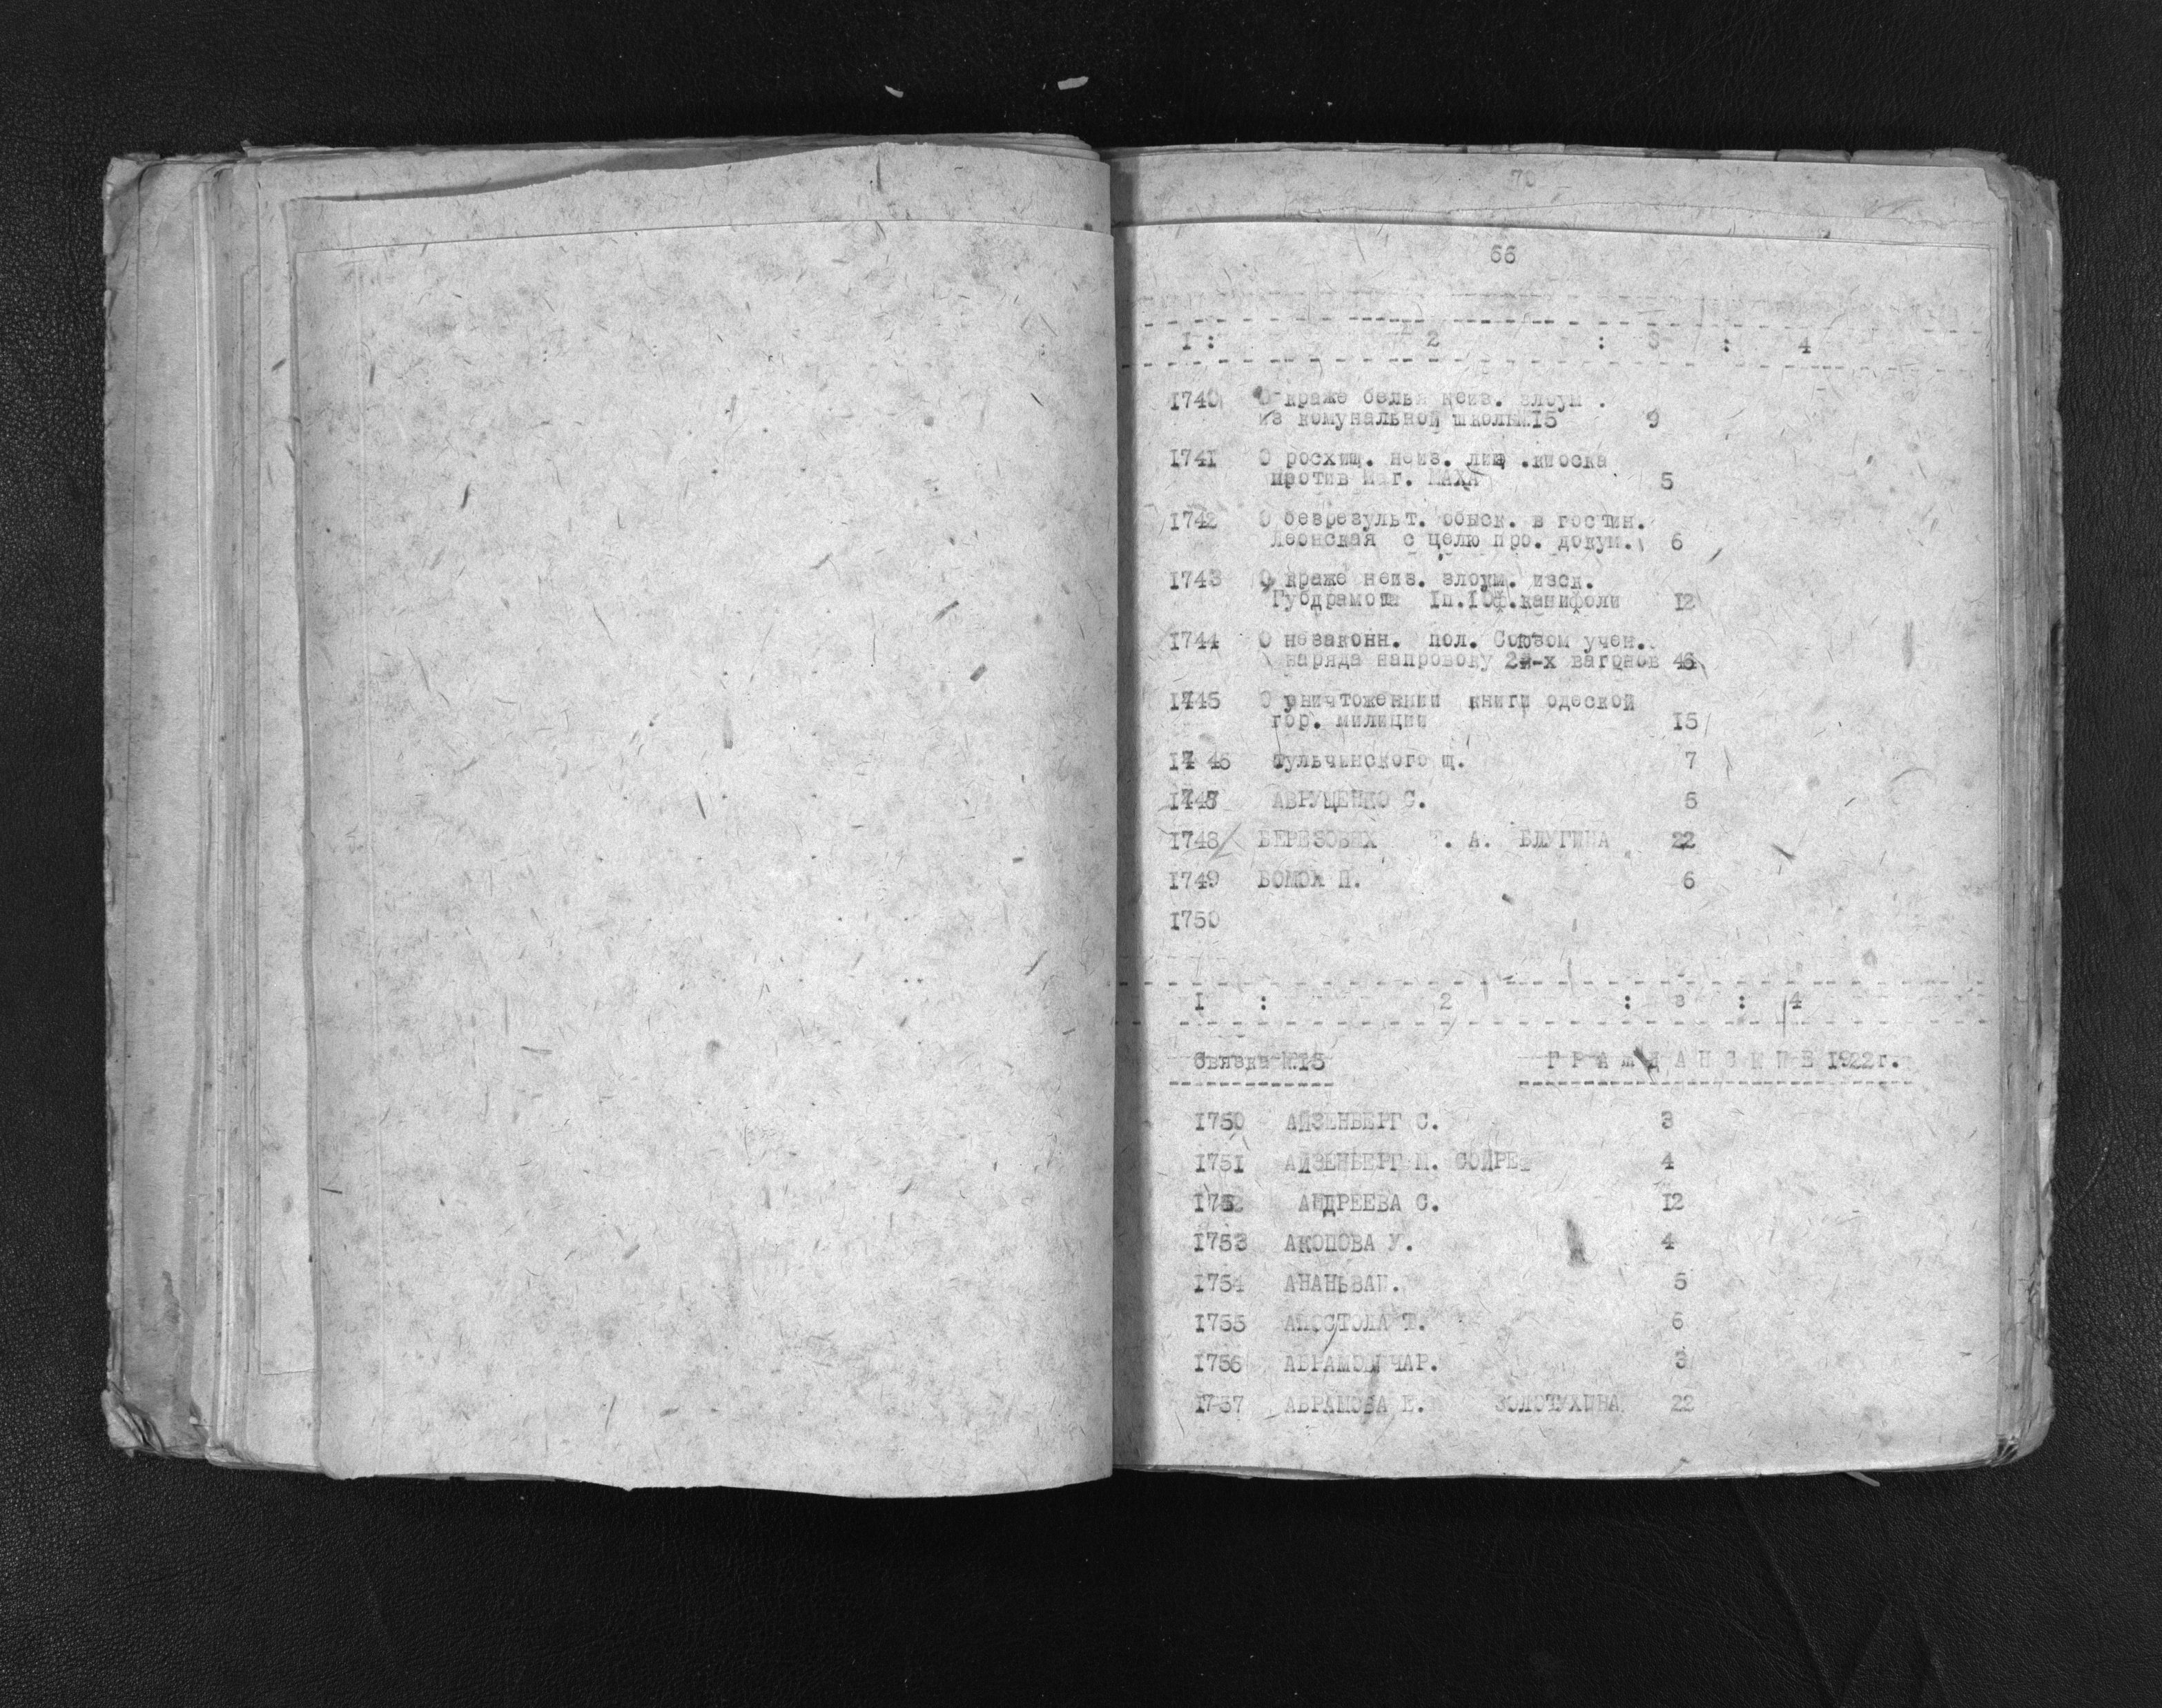 70
66
1 : 2 : 3 : 4
1740 О краже белья неиз. злоум .
из комунальной школы№15 9
1741 О росхищ. неиз. лиц .киоска
против маг. МАХА 5
1742 О безрезульт. обыск. в гостин.
Леонская с целю про. докум. 6
1743 О краже неиз. злоум. изск.
Губдрамота 1п.10ф.канифоли 12
1744 О незаконн. пол. Союзом учен.
наряда напровоку 2-х вагонов 46
1745 О уничтожениии книги одеской
гор. милиции 15
17 46 тульчинского щ. 7
1747 АВРУЩЕНКО С. 5
1748 БЕРЕЗОВИХ Т. А. БЛУГИНА 22
1749 БОМОЛ П. 6
1750
1 : 2 : 3 : 4
Связка №13 Г Р А Ж Д А Н С К И Е 1922г.
1750 АЙЗЕНБЕРГ С. 3
1751 АЙЗЕНБЕРГ М. СОЙРЕ 4
1752 АНДРЕЕВА С. 12
1753 АКОПОВА У. 4
1754 АНАНЬВАП. 5
1755 АПОСТОЛА Т. 6
1756 3
1757 АБРАМОВА Е. ЗОЛОТУХИНА 22